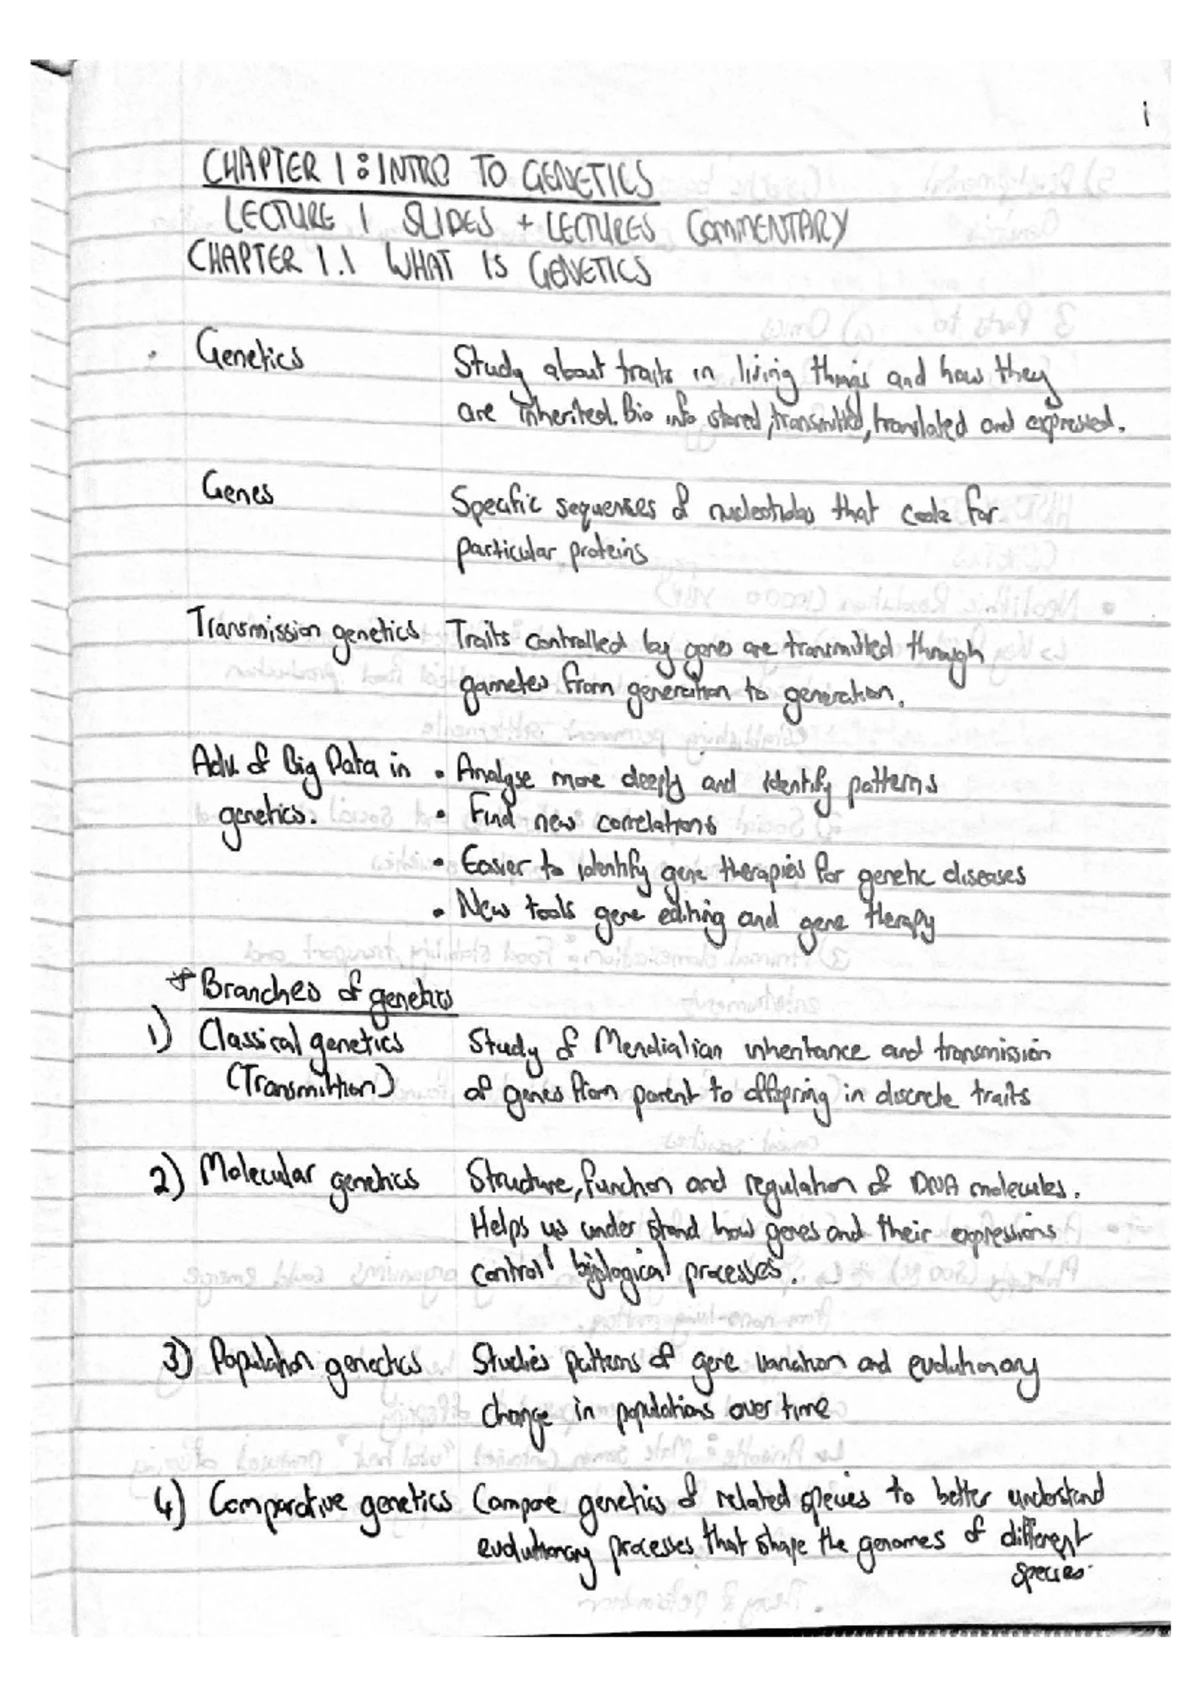 i
CHAPTER 1 : INTRO TO GENETICS
LECTURE 1 SLIDES + LECTURES COMMENTARY
CHAPTER 1.1 WHAT IS GENETICS
Genetics Study about traits in living things and how they
are inherited. Bio info stored, transmitted, translated and expressed.
Genes Specific sequenses of nucleotides that code for
particular proteins
Transmission genetics Traits controlled by genes are transmitted through
gametes from generation to generation.
Adv. of Big Data in • Analyse more deeply and identify patterns
genetics. • Find new correlations
• Easier to identify gene therapies for genetic diseases
• New tools gene editing and gene therapy
* Branches of genetics
1) Classical genetics Study of Mendialian inheritance and transmission
(Transmittion) of genes from parent to offspring in discrete traits
2) Molecular genetics Structure, function and regulation of DNA molecules.
Helps us under stand how genes and their expressions
control biological processes.
3) Population genetics Studies patterns of gene variation and evolutionary
change in populations over time
4) Comparative genetics Compare genetics of related species to better understand
evolutionary processes that shape the genomes of different
species.